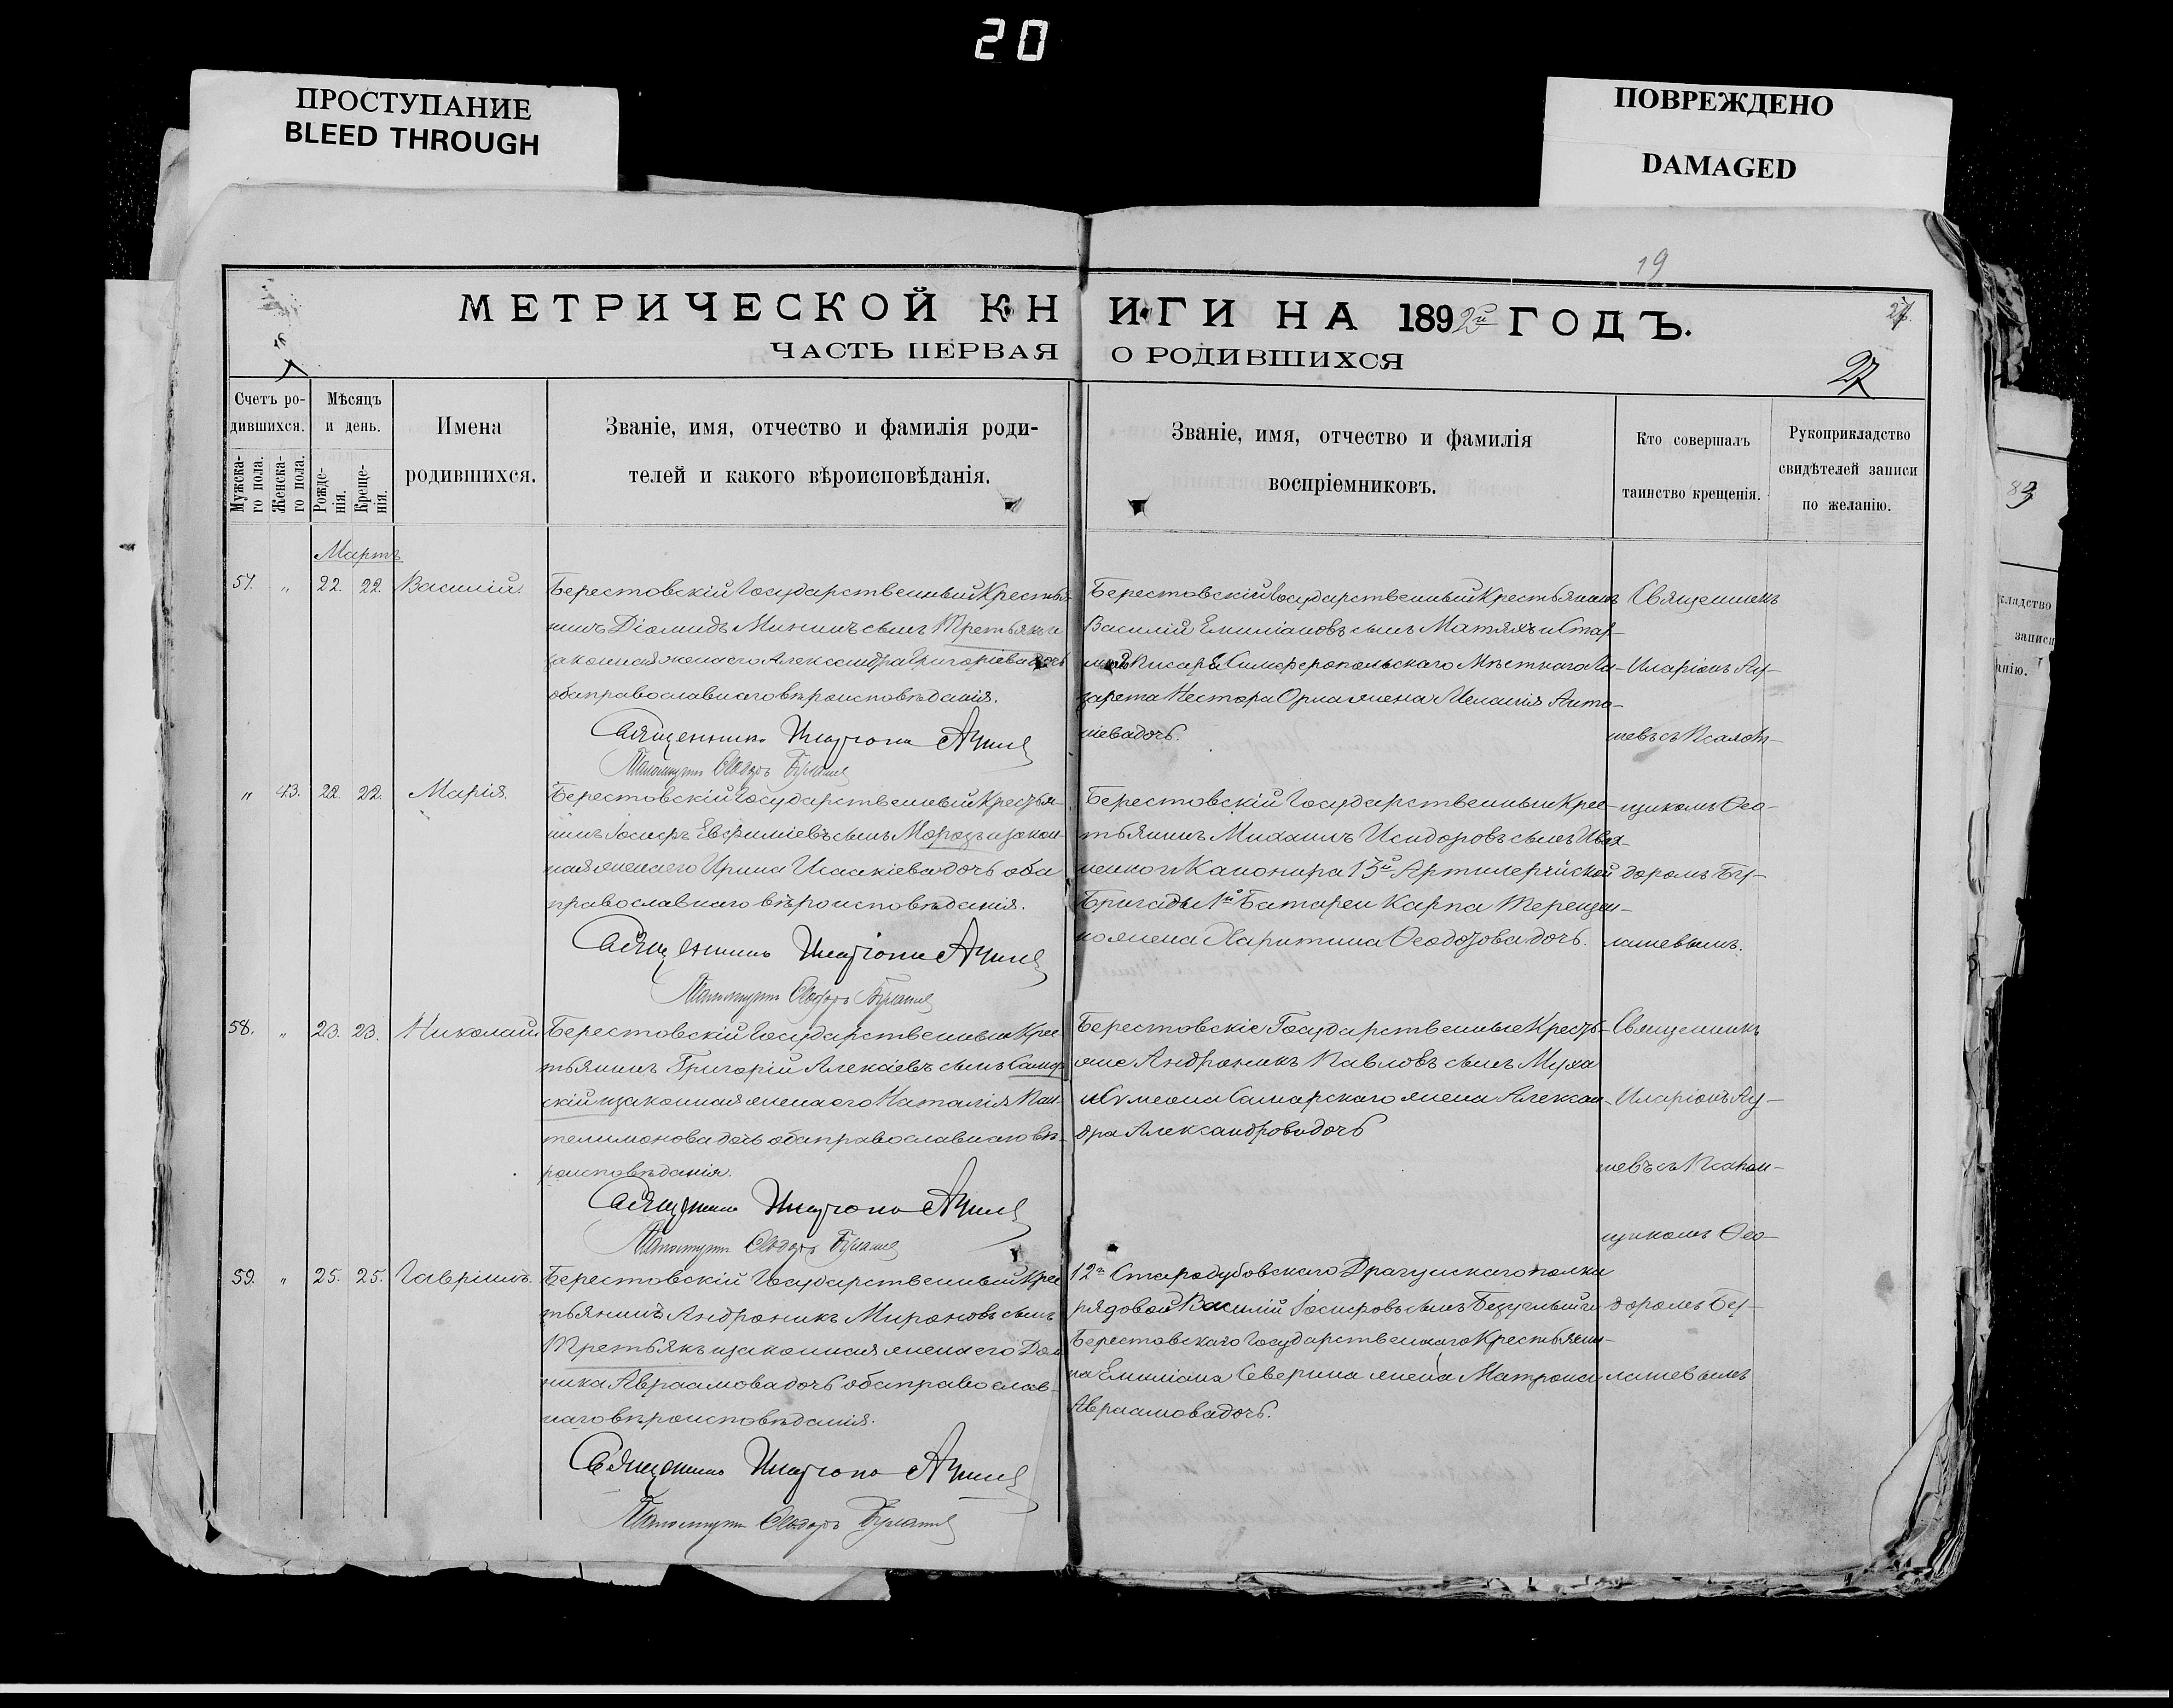 20
ПРОСТУПАНИЕ
BLEED THROUGH
ПОВРЕЖДЕНО
DAMAGED
19
МЕТРИЧЕСКОЙ КНИГИ НА 1892й ГОДЪ.
27.
ЧАСТЬ ПЕРВАЯ О РОДИВШИХСЯ
27
Счетъ родившихся.
Мужскаго пола.
Женскаго пола.
Мѣсяцъ и день.
Рожденія.
Крещенія.
Имена
родившихся.
Званіе, имя, отчество и фамилія роди-
телей и какого вѣроисповѣданія.
Званіе, имя, отчество и фамилія
воспріемниковъ.
Кто совершалъ
таинство крещенія.
Рукоприкладство
свидѣтелей записи
по желанію.
Мартъ
57. " 22. 22. Василій.
Берестовскій Государственный Крестья-
нинъ Діомидъ Мининъ сынъ Третьякъ и
законная жена его Александра Григоріева дочь
оба православнаго вѣроисповѣданія.
Священникъ Иларіонъ
Псаломщикъ Ѳеодоръ
Берестовскій Государственный Крестьянинъ
Василій Емиліановъ сынъ Матяхъ и Стар-
шій Писаря Симферопольскаго Мѣстнаго Ла-
зарета Нестора жена Меланія Анто-
ніева дочь.
Священникъ
Иларіонъ
шевъ съ Псалом-
" 43. 22. 22. Марія.
Берестовскій Государственный Крестья-
нинъ Іосифъ Евфиміевъ сынъ Морозъ и закон-
ная жена его Ирина Исаакіева дочь оба
православнаго вѣроисповѣданія.
Священникъ Иларіонъ
Псаломщикъ Ѳеодоръ
Берестовскій Государственный Крес-
тьянинъ Михаилъ Исидоровъ сынъ
ненко и Канонира 13й Артилерійской
Бригады 1й Батареи Карпа Терещен-
ко жена Харитина Ѳеодозова дочь.
щикомъ Ѳео-
доромъ Бу-
лашевымъ.
58. " 23. 23. Николай.
Берестовскій Государственный Крес-
тьянинъ Григорій Алексіевъ сынъ Самар-
скій и законная жена его Наталія Пан-
телимонова дочь оба православнаго вѣ-
роисповѣданія.
Священникъ Иларіонъ
Псаломщикъ Ѳеодоръ
Берестовскіе Государственные Кресть-
яне Андроникъ Павловъ сынъ Муха
и Сумеона Самарскаго жена Алексан-
дра Александрова дочь
Священникъ
Иларіонъ
шевъ съ Псалом-
щикомъ Ѳео-
59. " 25. 25. Гавріилъ.
Берестовскій Государственный Крес-
тьянинъ Андроникъ Мироновъ сынъ
Третьякъ и законная жена его Дом-
ника Авраамова дочь оба православ-
наго вѣроисповѣданія.
Священникъ Иларіонъ
Псаломщикъ Ѳеодоръ
12го Стародубовскаго Драгунскаго полка
рядовой Василій Іосифовъ сынъ Безуглый и
Берестовскаго Государственнаго Крестьяни-
на Емиліана Северина жена Матрона
Авраамова дочь.
доромъ Бу-
лашевымъ
83
кладство
записи
анію.